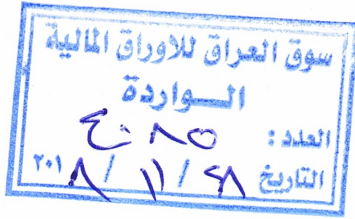 سوق العراق للاوراق المالية
الـــواردة
العدد : ٤٠٨٥
التاريخ ٢٨ / ١١ / ٢٠١٨